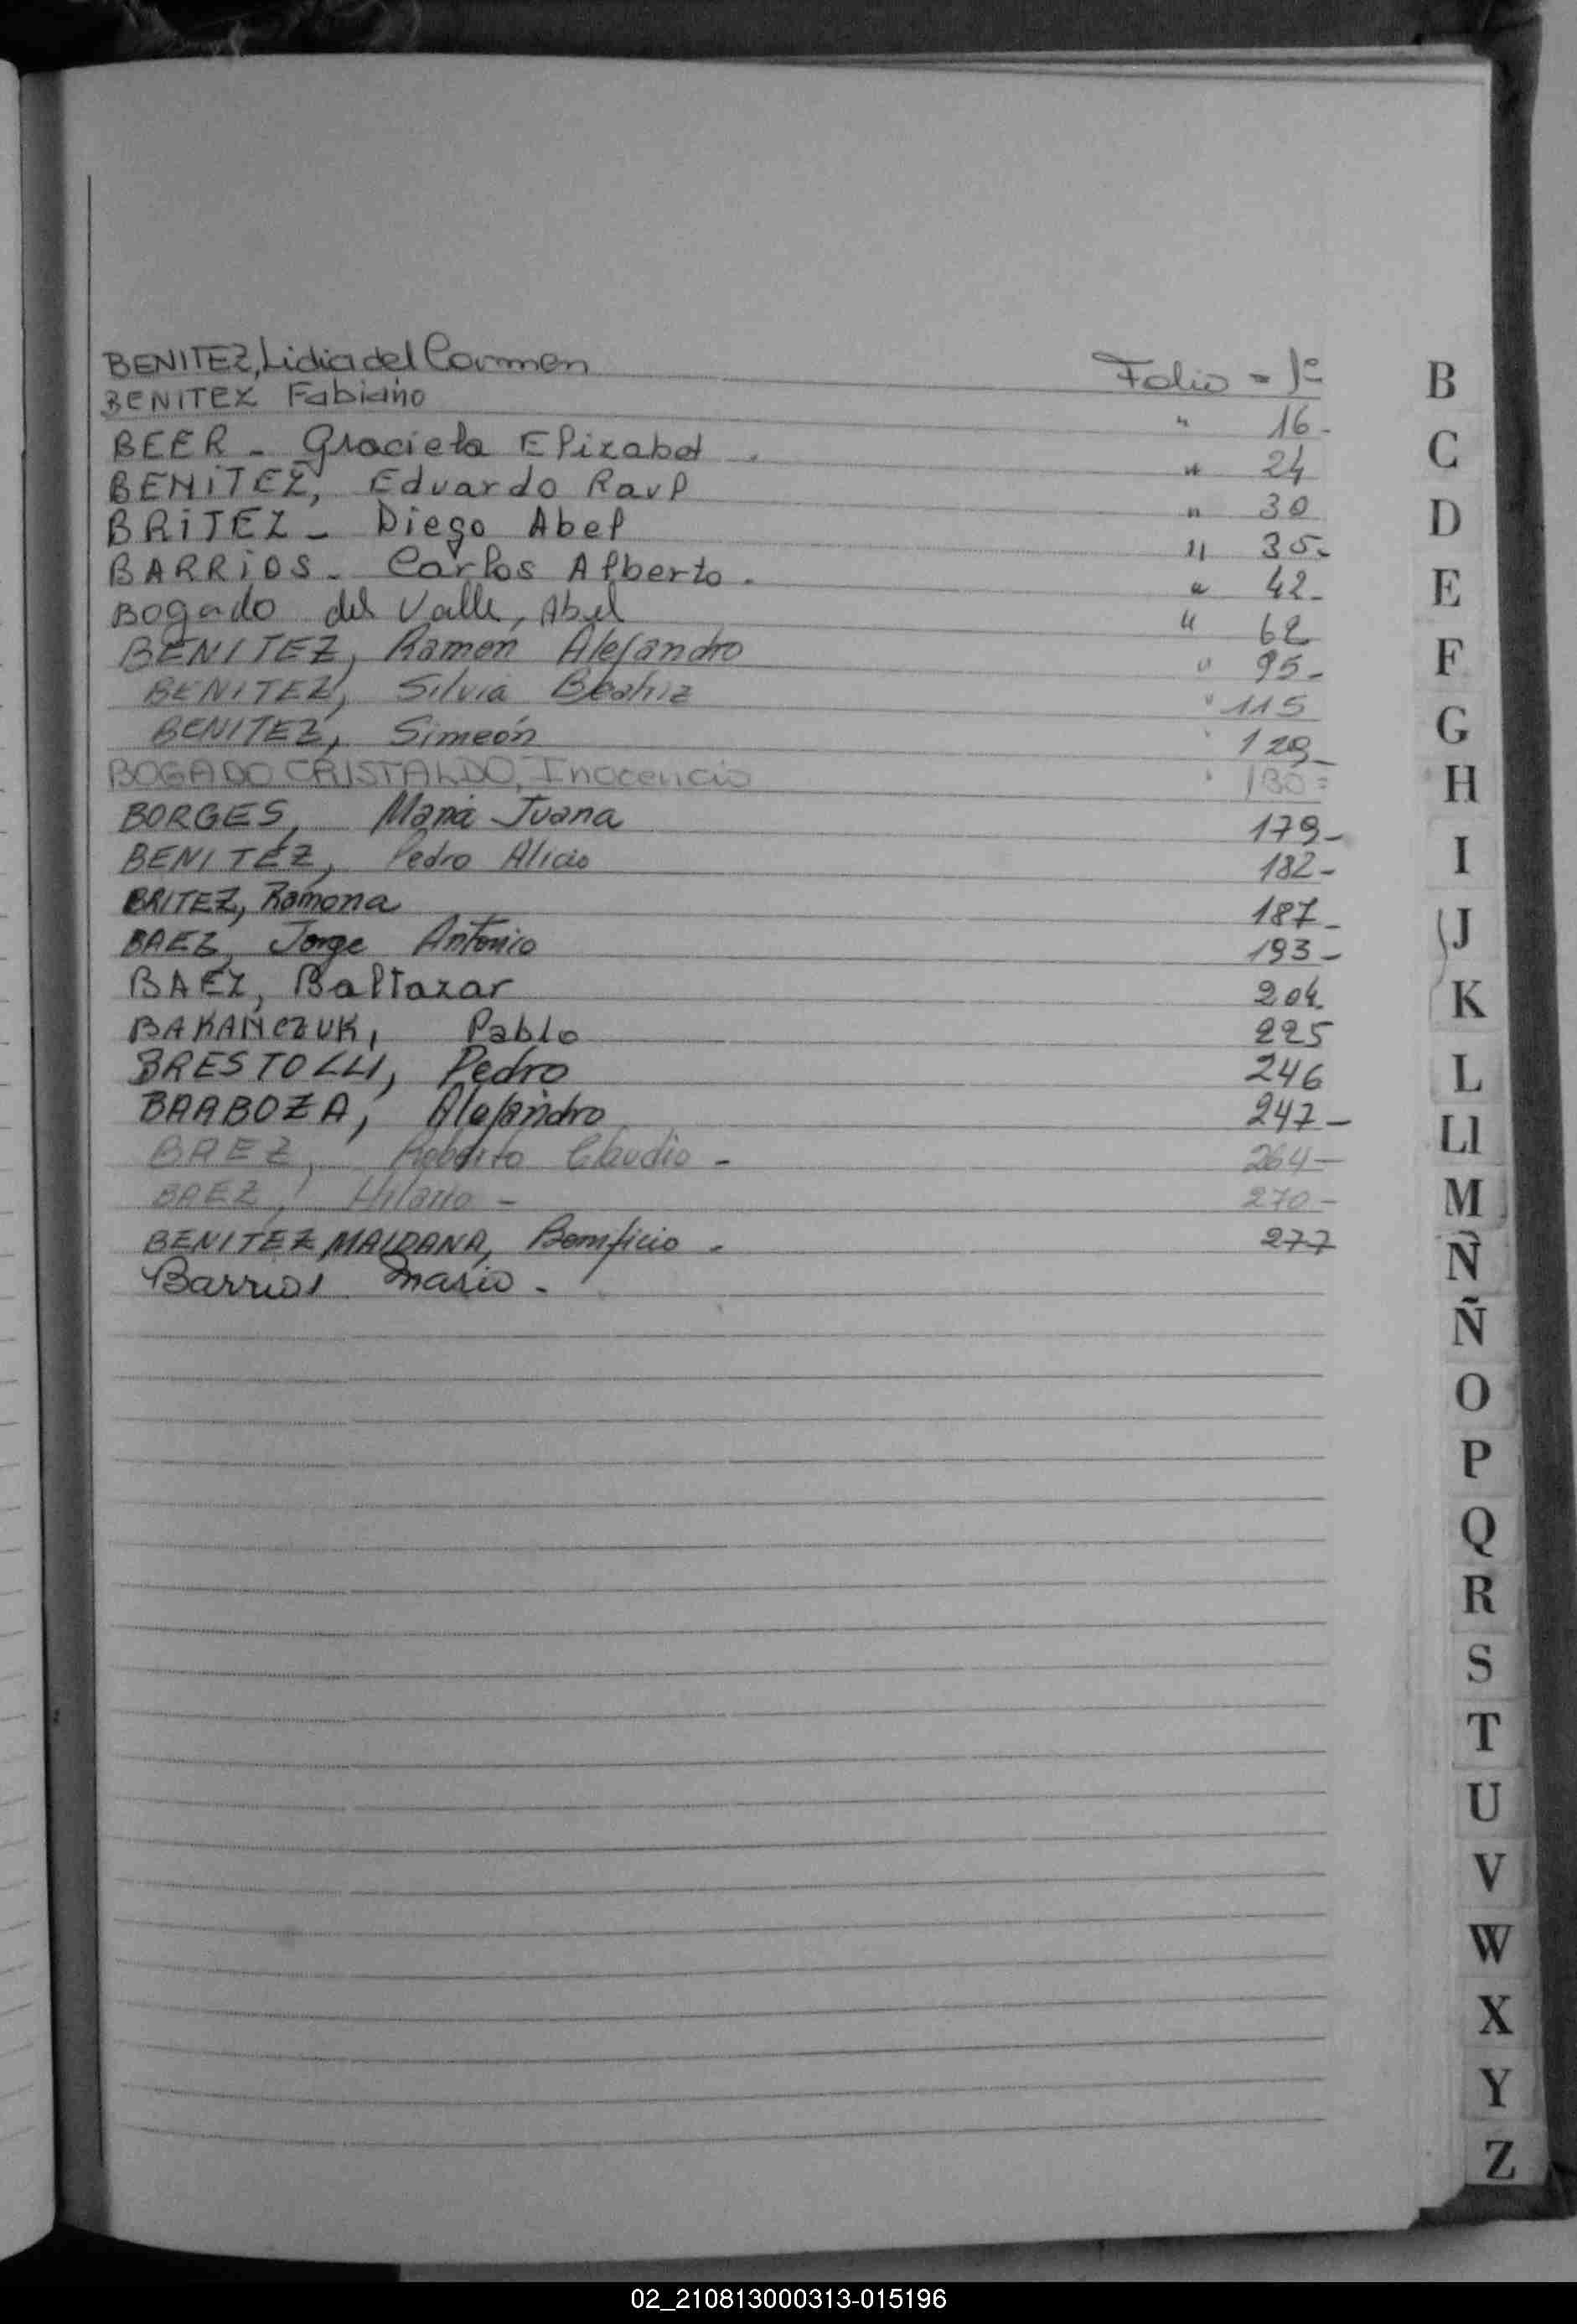 BENITEZ, Lidia del Carmen Folio - 1º
BENITEZ Fabiano " 16-
BEER - Graciela Elizabet. " 24
BENITEZ, Eduardo Raul " 30
BRITEZ - Diego Abel " 35-
BARRIOS - Carlos Alberto. " 42-
Bogado del Valle, Abel " 62
BENITEZ, Ramon Alejandro " 95-
BENITEZ, Silvia Beatriz " 115
BENITEZ, Simeón " 129-
BOGADO CRISTALDO, Inocencio " 130=
BORGES, Maria Juana 179-
BENITEZ, Pedro Alicio 182-
BRITEZ, Ramona 187-
BAEZ, Jorge Antonio 193-
BAEZ, Baltazar 204.
BAKAÑCZUK, Pablo 225
BRESTOLLI, Pedro 246
BARBOZA, Alejandro 247-
BAEZ, Roberto Claudio - 264-
BAEZ, Hilario - 270-
BENITEZ MAIDANA, Bonificio - 277
Barrios Mario -
B
C
D
E
F
G
H
I
J
K
L
Ll
M
Ñ
Ñ
O
P
Q
R
S
T
U
V
W
X
Y
Z
02_210813000313-015196